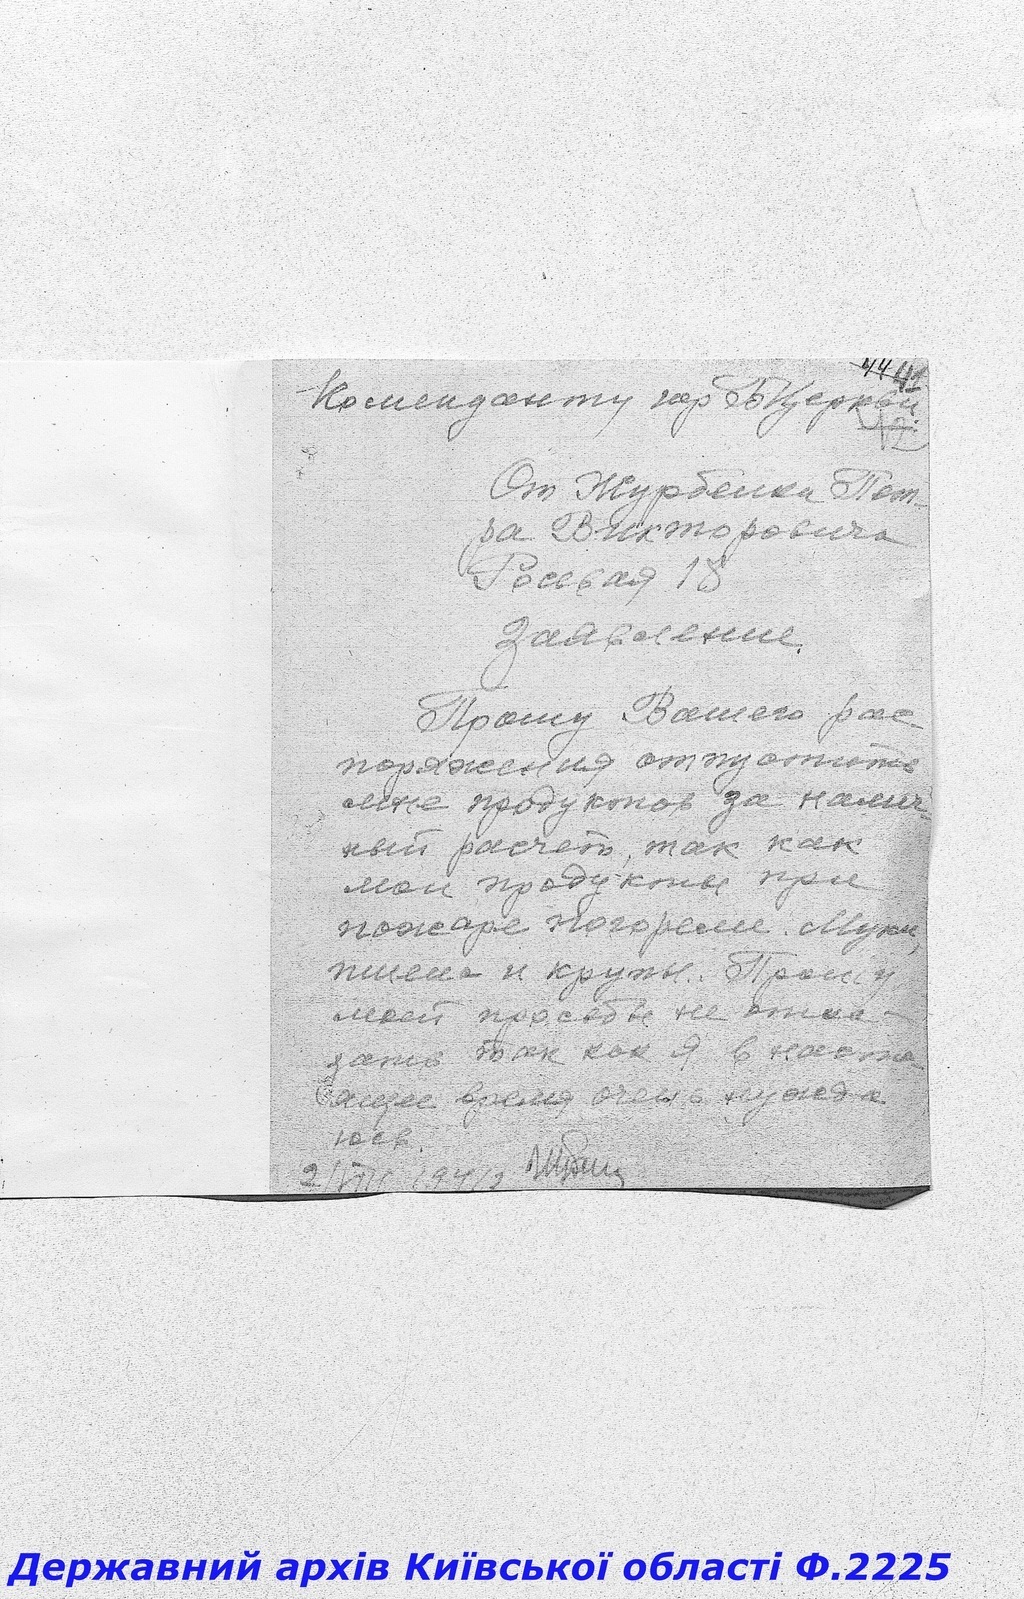 44 41
Коменданту гор Б Церкви
От Журбенка Пет-
ра Викторовича
Росевая 18
Заявление
Прошу Вашего рас
поряжения отпустить
мне продуктов за налич-
ный расчеть, так как
мои продукты при
пожаре погорели. Муки,
пшено и крупы. Прошу
моей просьбы не отка-
зать так как я в насто
ящее время очень нужда
юсь.
2/VIII 1941
Державний архів Київської області Ф.2225